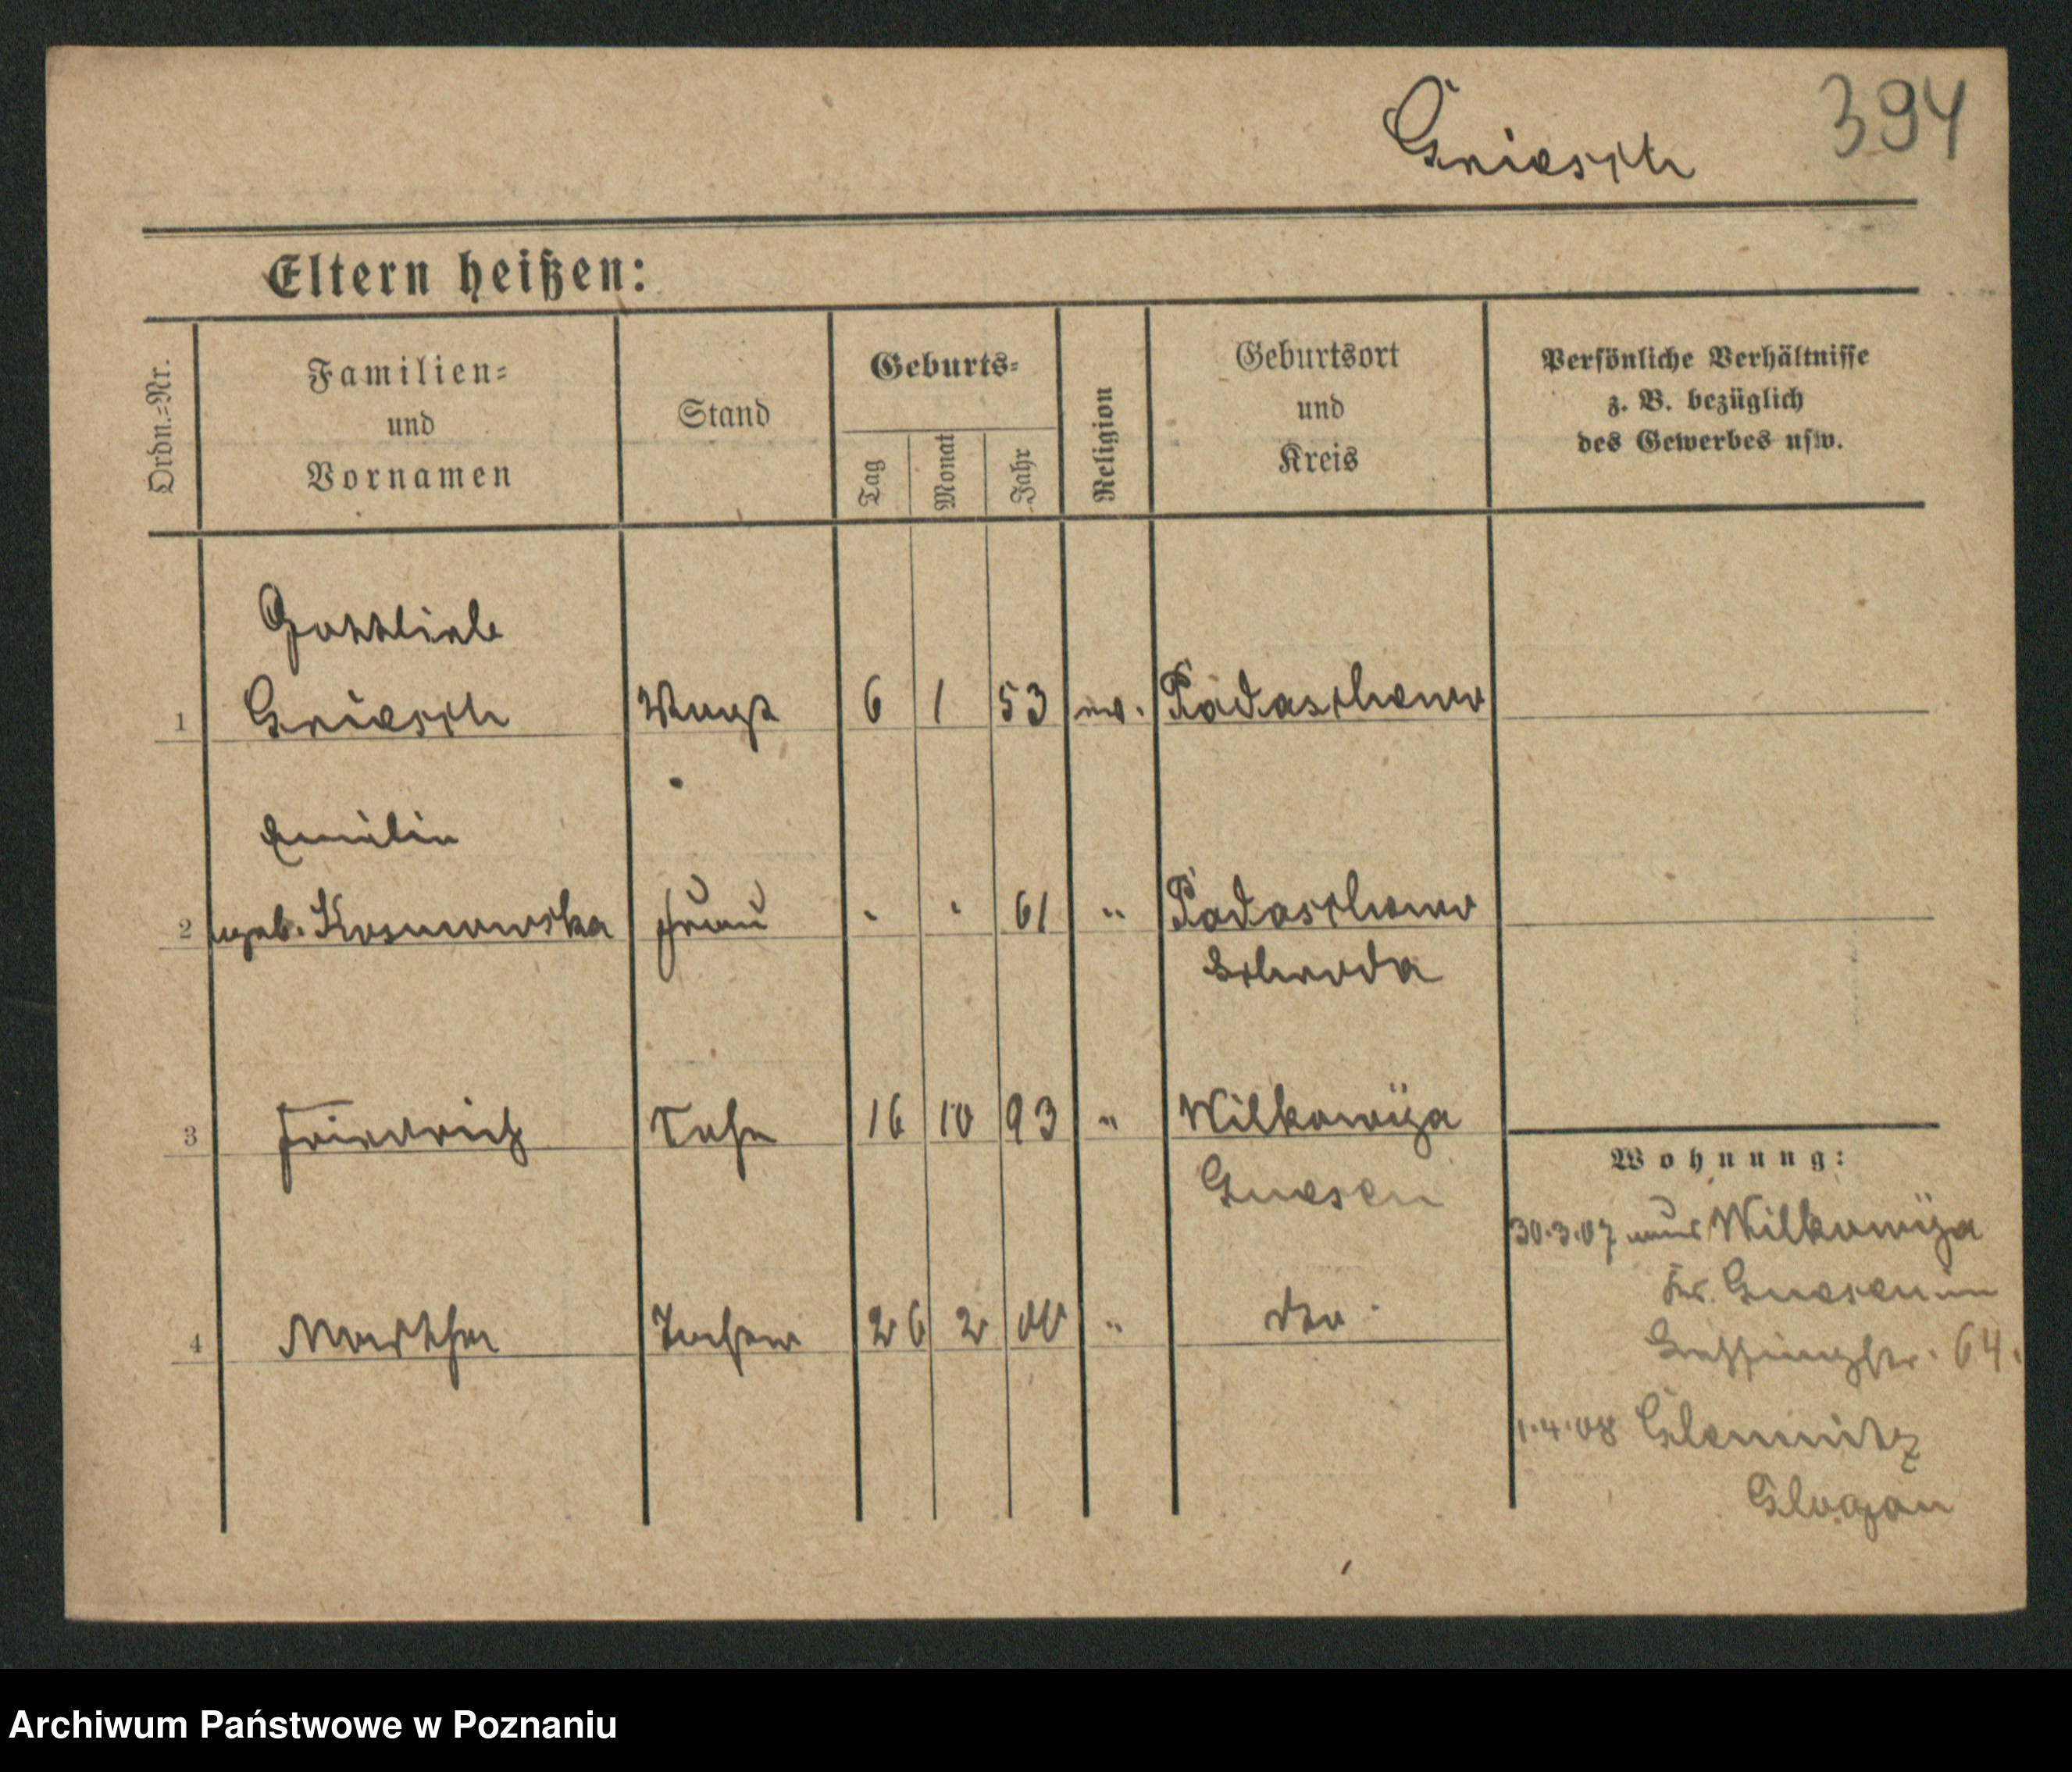 394
Griesch
Eltern heißen:
Ordn.=Nr.
Familien=
und
Vornamen
Stand
Geburts=
Tag
Monat
Jahr
Religion
Geburtsort
und
Kreis
Persönliche Verhältnisse
z. B. bezüglich
des Gewerbes usw.
Gottlieb
1 Griesch Vogt 6 1 53 ev. Padaschewo
Emilie
2 geb. Kosmowska Frau " " 61 " Padaschewo
Schroda
3 Friedrich Sohn 16 10 93 " Wilkowÿa
Gnesen
Wohnung:
30.3.07 aus Wilkowÿa
Kr. Gnesen in
64.
4 Martha Tochter 26 2 00 " dto
1.4.08 Glemnitz
Glogau
Archiwum Państwowe w Poznaniu